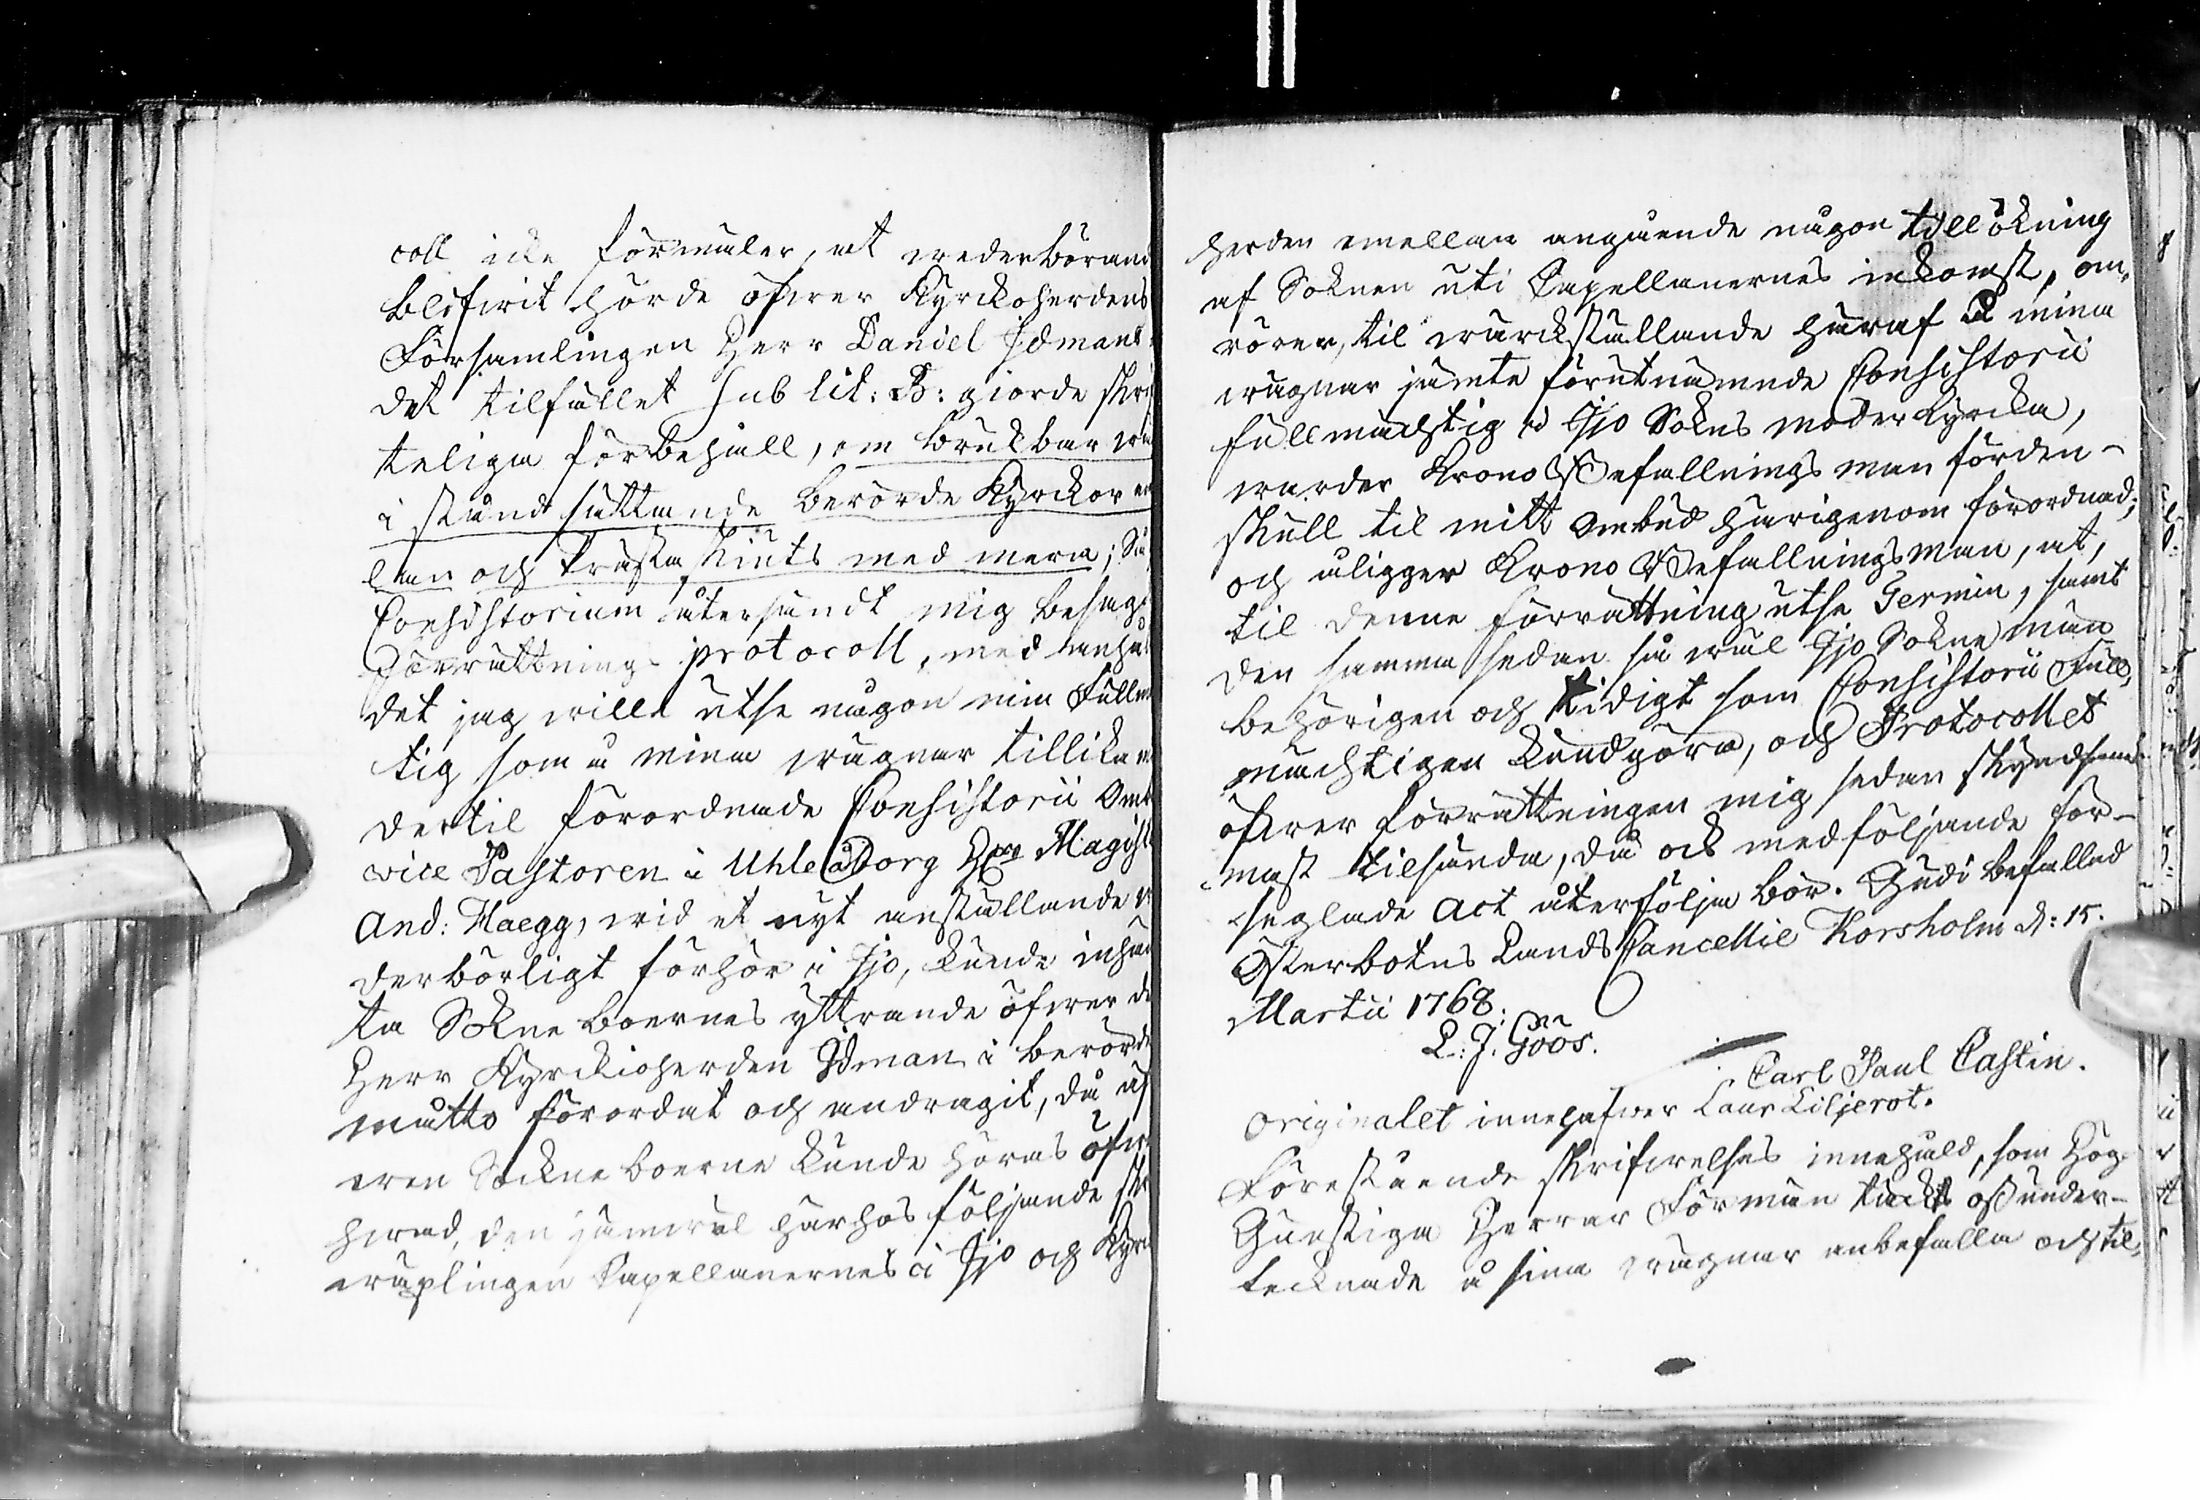 coll icke förmäler, at wederböran
blifwit hörde öfwer Kyrckoherdens
Församlingen Herr Daniel Idmans
det tilfället sub lit: B: giorde skri
teliga förbehåll, om brukbar
i stånd sättande berörde Kyrckor
lan och Prästa skiuts med mera; Så
Consistorium återsändt mig besag
Förrättnings protocoll, med anhål
det jag wille utse någon min Fullm
tig som å mina wägnar tillika m
dertil förordnade Consistorii Omb
vice Pastoren i Uhleåborg Herr Magist
And: Haegg, wid et nyt anställande
derbörligt förhör i Ijo, kunde inhäm
ta Sokneboernes yttrande öfwer de
Herr Kyrckioherden Idman i berörde
måtto förordat och andragit, då äf
wen Sockneboerne kunde höras öfw
hwad, den jämwäl härhos följande
wäxlingen Capellanernes i Ijo och Kyrc
herden emellan angående någon tillökning
af Soknen uti Capellanernes inkomst, om-
rörer, til wärckställande häraf å mina
wägnar jämte förutnämnde Consistorii
fullmächtig i Ijo Sokns moderkyrcka,
warder Krono Befallnings man förden-
skull til mitt Ombud härigenom förordnad;
och åligger Krono Befallningsman, at,
til denne förrättning utse Termin, samt
den samma sedan så wäl Ijo Soknemän
behörigen och tidigt som Consistorii Full-
mächtigen kundgöra, och Protocollet
öfwer förrättningen mig sedan skyndsam-
mast tilsända, då ock medföljande för-
seglade Act återfölja bör. Gudi befallad
Österbotns Lands Cancellie Korsholm d: 15.
Martii 1768.
L: J. Göös.
Carl Paul Castin.
Originalet innehafwer Laur Liljerot.
Förestående skrifwelses innehåld, som Hög-
Gunstiga Herrar Förmän täckts oss under-
tecknade å sina wägnar anbefalla och til-